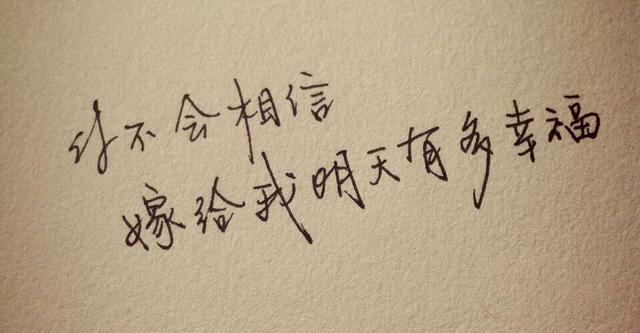 你不会相信
嫁给我明天有多幸福